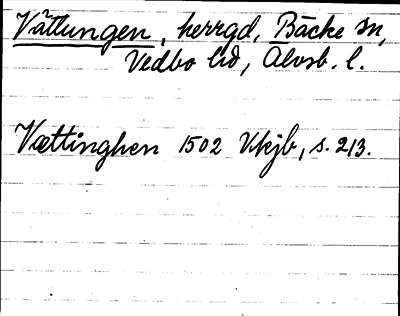 Vätlungen, herrgd, Bäcke sn,
Vedbo hd, Älvsb. l.
Vættinghen 1502 Vkjb, s. 213.